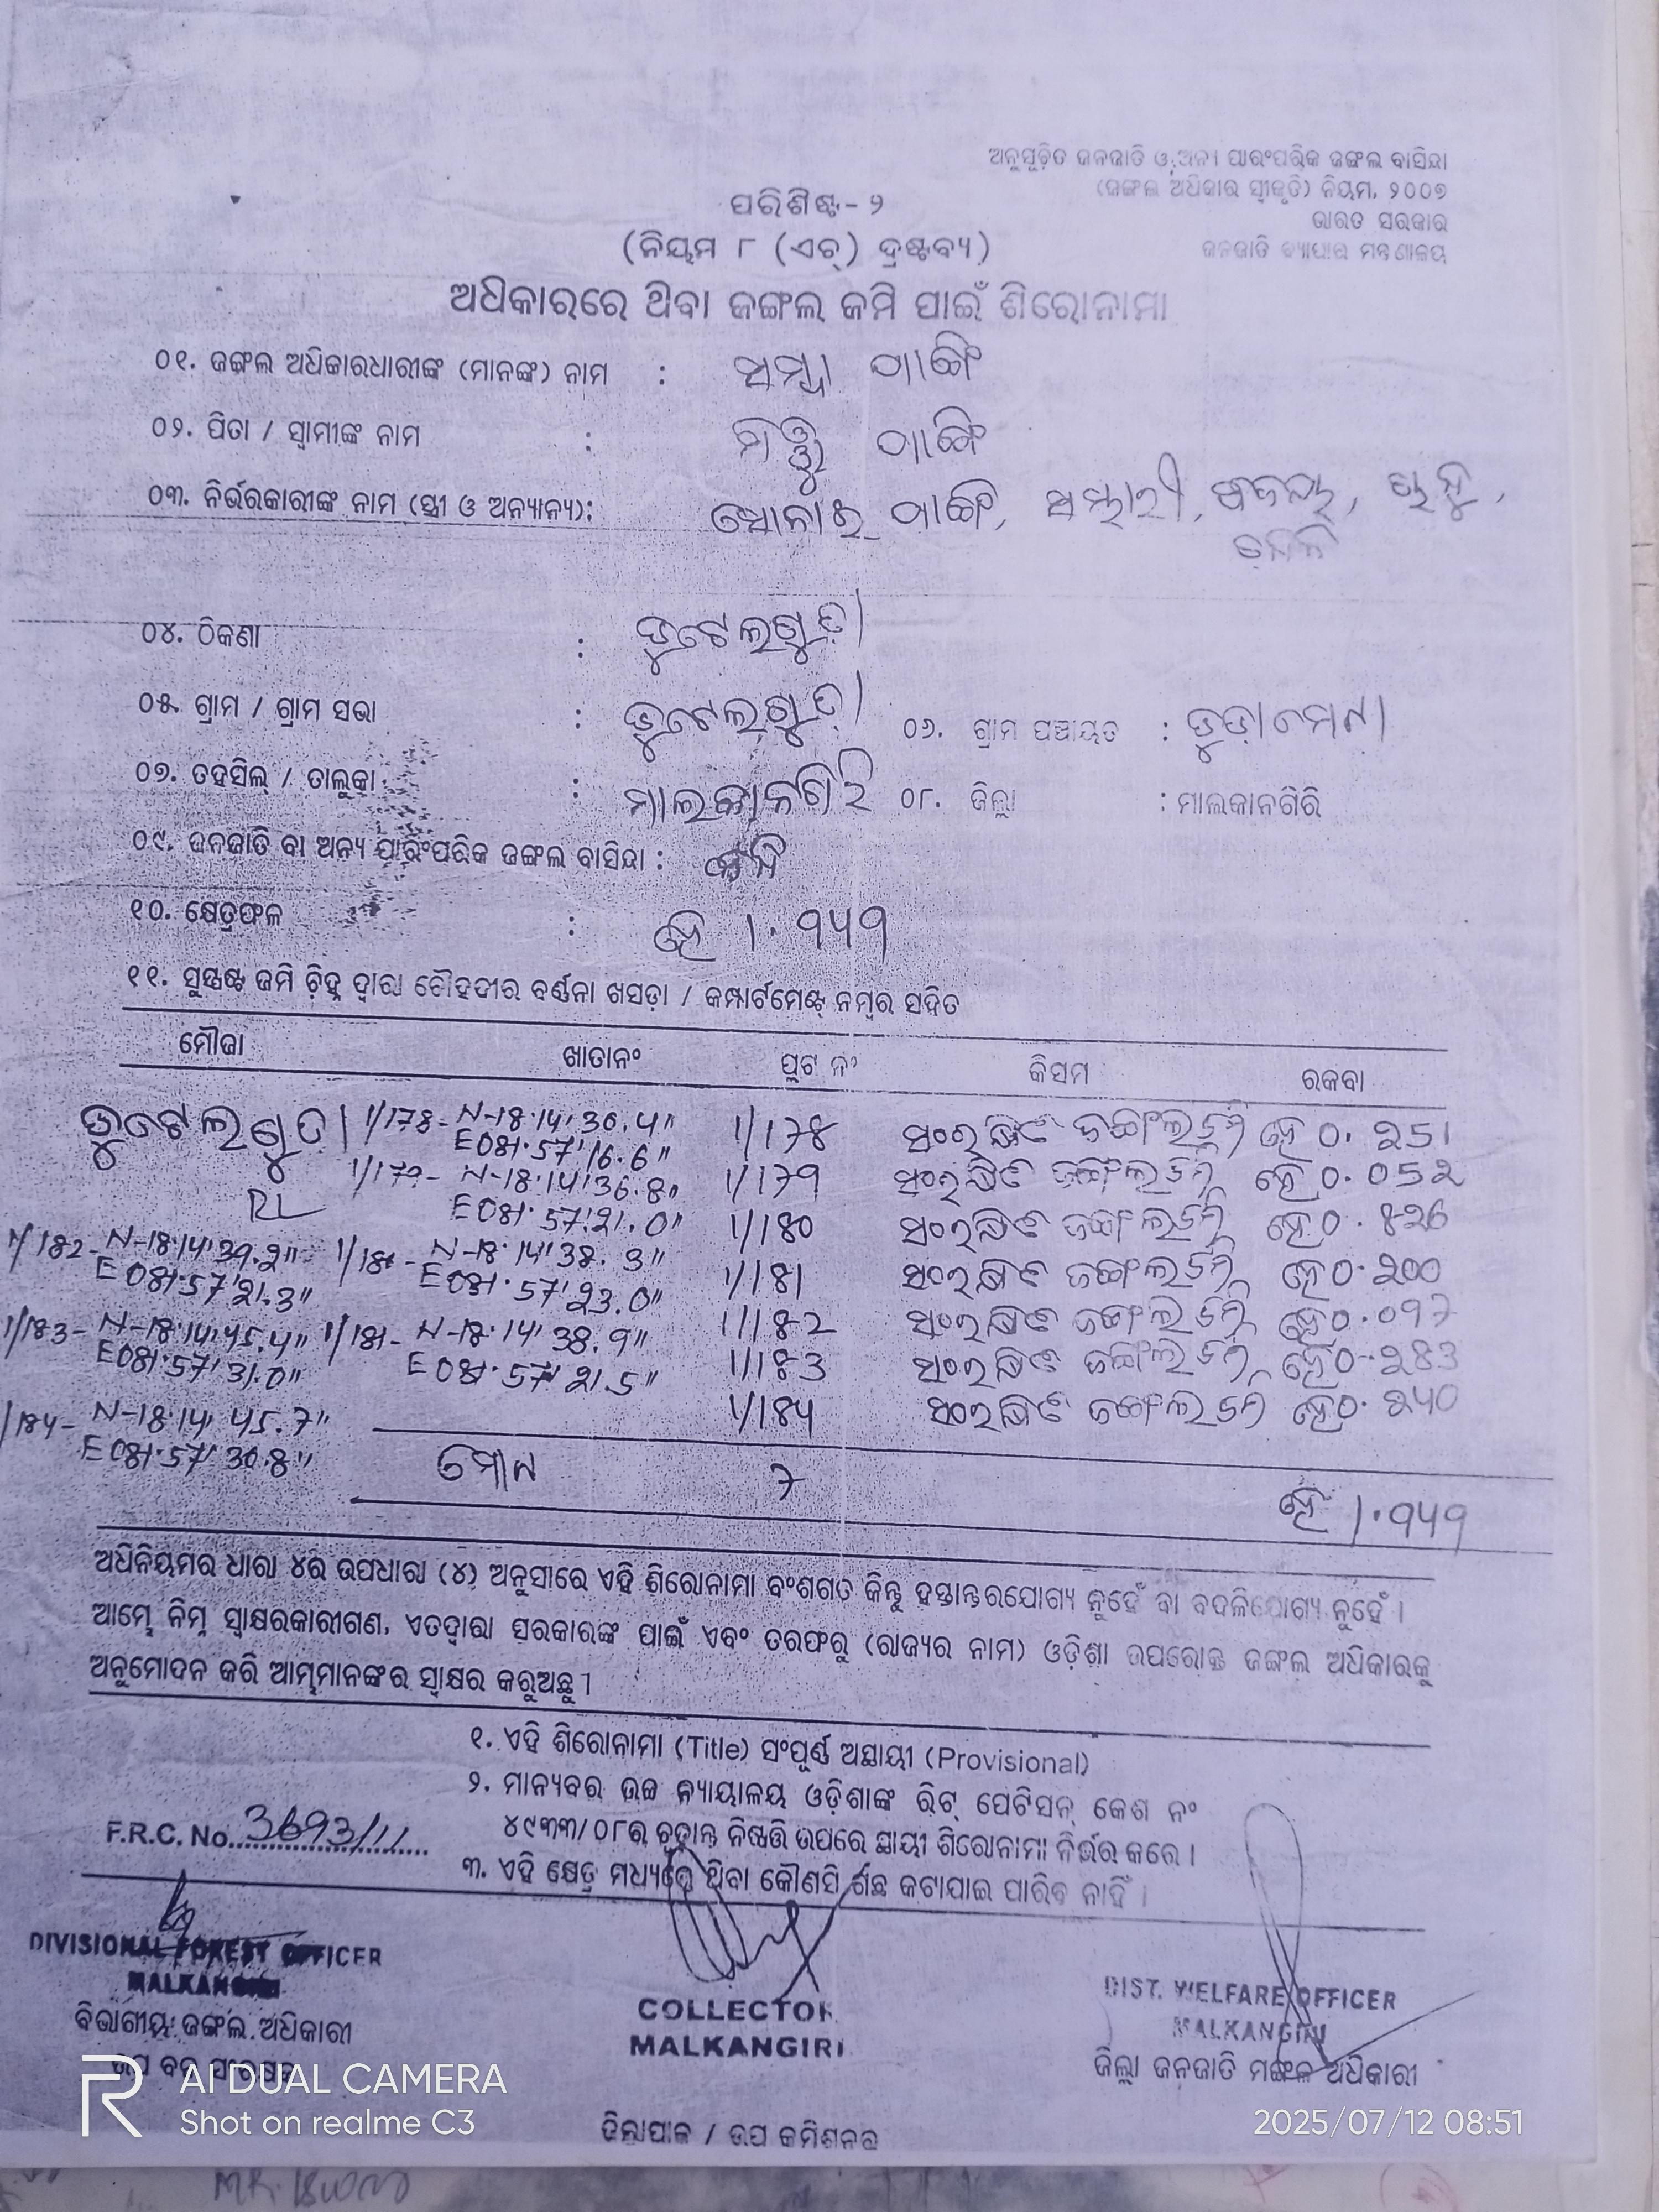 ଅନୁସୂଚିତ ଜନଜାତି ଓ ଅନ୍ୟ ପାରଂପରିକ ଜଙ୍ଗଲ ବାସିନ୍ଦା
(ଜଙ୍ଗଲ ଅଧିକାର ସ୍ୱୀକୃତି) ନିୟମ, ୨୦୦୭
ଭାରତ ସରକାର
ଜନଜାତି ବ୍ୟାପାର ମନ୍ତ୍ରଣାଳୟ
ପରିଶିଷ୍ଟ - ୨
(ନିୟମ ୮ (ଏଚ୍) ଦ୍ରଷ୍ଟବ୍ୟ)
ଅଧିକାରରେ ଥିବା ଜଙ୍ଗଲ ଜମି ପାଇଁ ଶିରୋନାମା
୦୧. ଜଙ୍ଗଲ ଅଧିକାରଧାରୀଙ୍କ (ମାନଙ୍କ) ନାମ :
୦୨. ପିତା / ସ୍ୱାମୀଙ୍କ ନାମ :
୦୩. ନିର୍ଭରକାରୀଙ୍କ ନାମ (ସ୍ତ୍ରୀ ଓ ଅନ୍ୟାନ୍ୟ):
୦୪. ଠିକଣା : ଭୁଟେଲଗୁଡ଼ା
୦୫. ଗ୍ରାମ / ଗ୍ରାମ ସଭା : ଭୁଟେଲଗୁଡ଼ା ୦୬. ଗ୍ରାମ ପଞ୍ଚାୟତ :
୦୭. ତହସିଲ୍ / ତାଲୁକା : ମାଲକାନଗିରି ୦୮. ଜିଲ୍ଲା : ମାଲକାନଗିରି
୦୯. ଜନଜାତି ବା ଅନ୍ୟ ପାରଂପରିକ ଜଙ୍ଗଲ ବାସିନ୍ଦା :
୧୦. କ୍ଷେତ୍ରଫଳ : ହେ 1.949
୧୧. ସୁସ୍ପଷ୍ଟ ଜମି ଚିହ୍ନ ଦ୍ୱାରା ଚୌହଦୀର ବର୍ଣ୍ଣନା ଖସଡ଼ା / କମ୍ପାର୍ଟମେଣ୍ଟ୍ ନମ୍ବର ସହିତ
ମୌଜା ଖାତାନଂ ପ୍ଲଟ ନଂ କିସମ ରକବା
ଭୁଟେଲଗୁଡ଼ା 1/178- N-18·14'36.4" 1/178 ସଂରକ୍ଷିତ ଜଙ୍ଗଲ ହେ 0.251
E 081·57'16.6"
1/179- N-18·14'36.8" 1/179 ସଂରକ୍ଷିତ ଜଙ୍ଗଲ ହେ 0.052
RL E 081·57'21.0" 1/180 ସଂରକ୍ଷିତ ଜଙ୍ଗଲ ହେ 0.826
1/182- N-18·14'39.2" N-18·14'38.3"
E 081·57'21.3" E 081·57'23.0" 1/181 ସଂରକ୍ଷିତ ଜଙ୍ଗଲ ହେ 0.200
1/183- N-18·14'45.4" 1/181- N-18·14'38.9" 1/182 ସଂରକ୍ଷିତ ଜଙ୍ଗଲ ହେ 0.097
E 081·57'31.0" E 081·57'21.5" 1/183 ସଂରକ୍ଷିତ ଜଙ୍ଗଲ ହେ 0.283
1/184- N-18·14'45.7" 1/184 ସଂରକ୍ଷିତ ଜଙ୍ଗଲ ହେ 0.240
E 081·57'30.8" ମୋଟ 7 ହେ 1.949
ଅଧିନିୟମର ଧାରା ୪ର ଉପଧାରା (୪) ଅନୁସାରେ ଏହି ଶିରୋନାମା ବଂଶଗତ କିନ୍ତୁ ହସ୍ତାନ୍ତରଯୋଗ୍ୟ ନୁହେଁ ବା ବଦଳିଯୋଗ୍ୟ ନୁହେଁ ।
ଆମ୍ଭେ ନିମ୍ନ ସ୍ୱାକ୍ଷରକାରୀଗଣ, ଏତଦ୍ୱାରା ସରକାରଙ୍କ ପାଇଁ ଏବଂ ତରଫରୁ (ରାଜ୍ୟର ନାମ) ଓଡ଼ିଶା ଉପରୋକ୍ତ ଜଙ୍ଗଲ ଅଧିକାରକୁ
ଅନୁମୋଦନ କରି ଆମ୍ଭମାନଙ୍କର ସ୍ୱାକ୍ଷର କରୁଅଛୁ ।
୧. ଏହି ଶିରୋନାମା (Title) ସଂପୂର୍ଣ୍ଣ ଅସ୍ଥାୟୀ (Provisional)
୨. ମାନ୍ୟବର ଉଚ୍ଚ ନ୍ୟାୟାଳୟ ଓଡ଼ିଶାଙ୍କ ରିଟ୍ ପେଟିସନ୍ କେଶ ନଂ
୪୯୩୩/୦୮ର ଚୂଡ଼ାନ୍ତ ନିଷ୍ପତ୍ତି ଉପରେ ସ୍ଥାୟୀ ଶିରୋନାମା ନିର୍ଭର କରେ ।
F.R.C. No. 3693/11
୩. ଏହି କ୍ଷେତ୍ର ମଧ୍ୟରେ ଥିବା କୌଣସି ଗଛ କଟାଯାଇ ପାରିବ ନାହିଁ ।
DIVISIONAL FOREST OFFICER
MALKANGIRI
ବିଭାଗୀୟ ଜଙ୍ଗଲ ଅଧିକାରୀ
ଉପ ବନ ସଂରକ୍ଷକ
COLLECTOR
MALKANGIRI
ଜିଲ୍ଲାପାଳ / ଉପ କମିଶନର
DIST. WELFARE OFFICER
MALKANGIRI
ଜିଲ୍ଲା ଜନଜାତି ମଙ୍ଗଳ ଅଧିକାରୀ
AI DUAL CAMERA
Shot on realme C3
2025/07/12 08:51